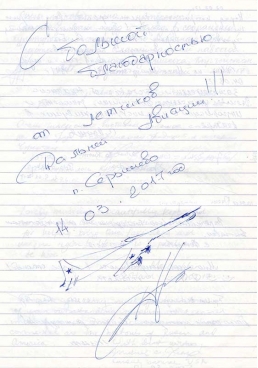 С большой
благодарностью
от летчиков
Дальней Авиации!!!
п. Серышево
14.03.2017 год